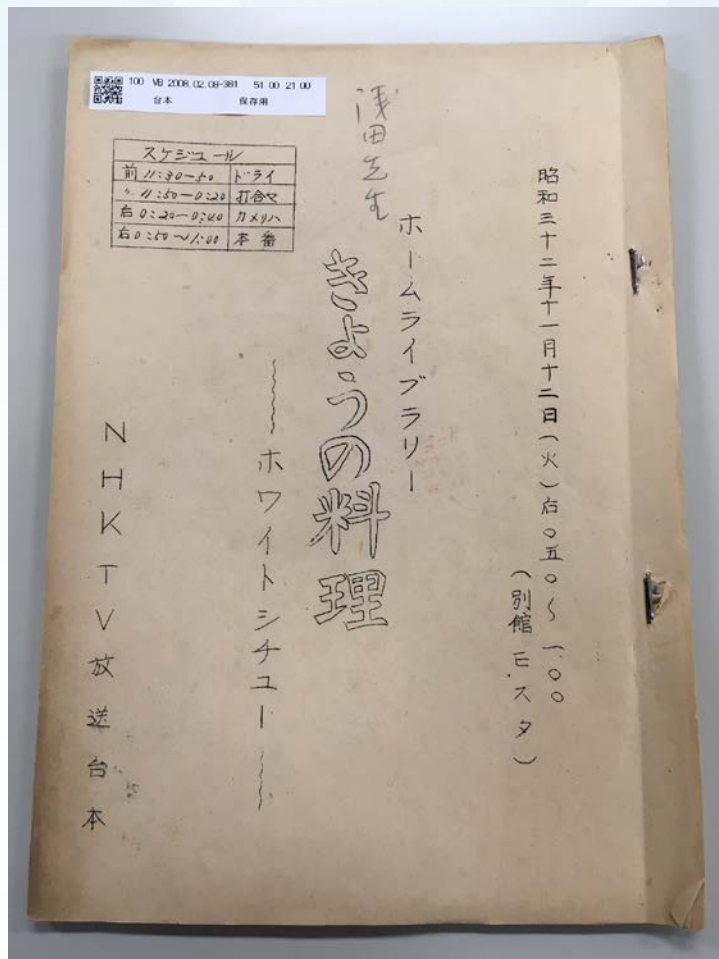 100 VB 2008.02.09-381 51 00 21 00
台本 保存用
スケジュール
前 11:30-50 ドライ
〃 11:50-0:20 打合セ
后 0:20-0:40 カメリハ
后 0:50〜1:00 本番
昭和三十二年十一月十二日(火)后〇五〇〜一.〇〇
(別館モスタ)
ホームライブラリー
浅田先生
きようの料理
ホワイトシチユー
NHKTV放送台本